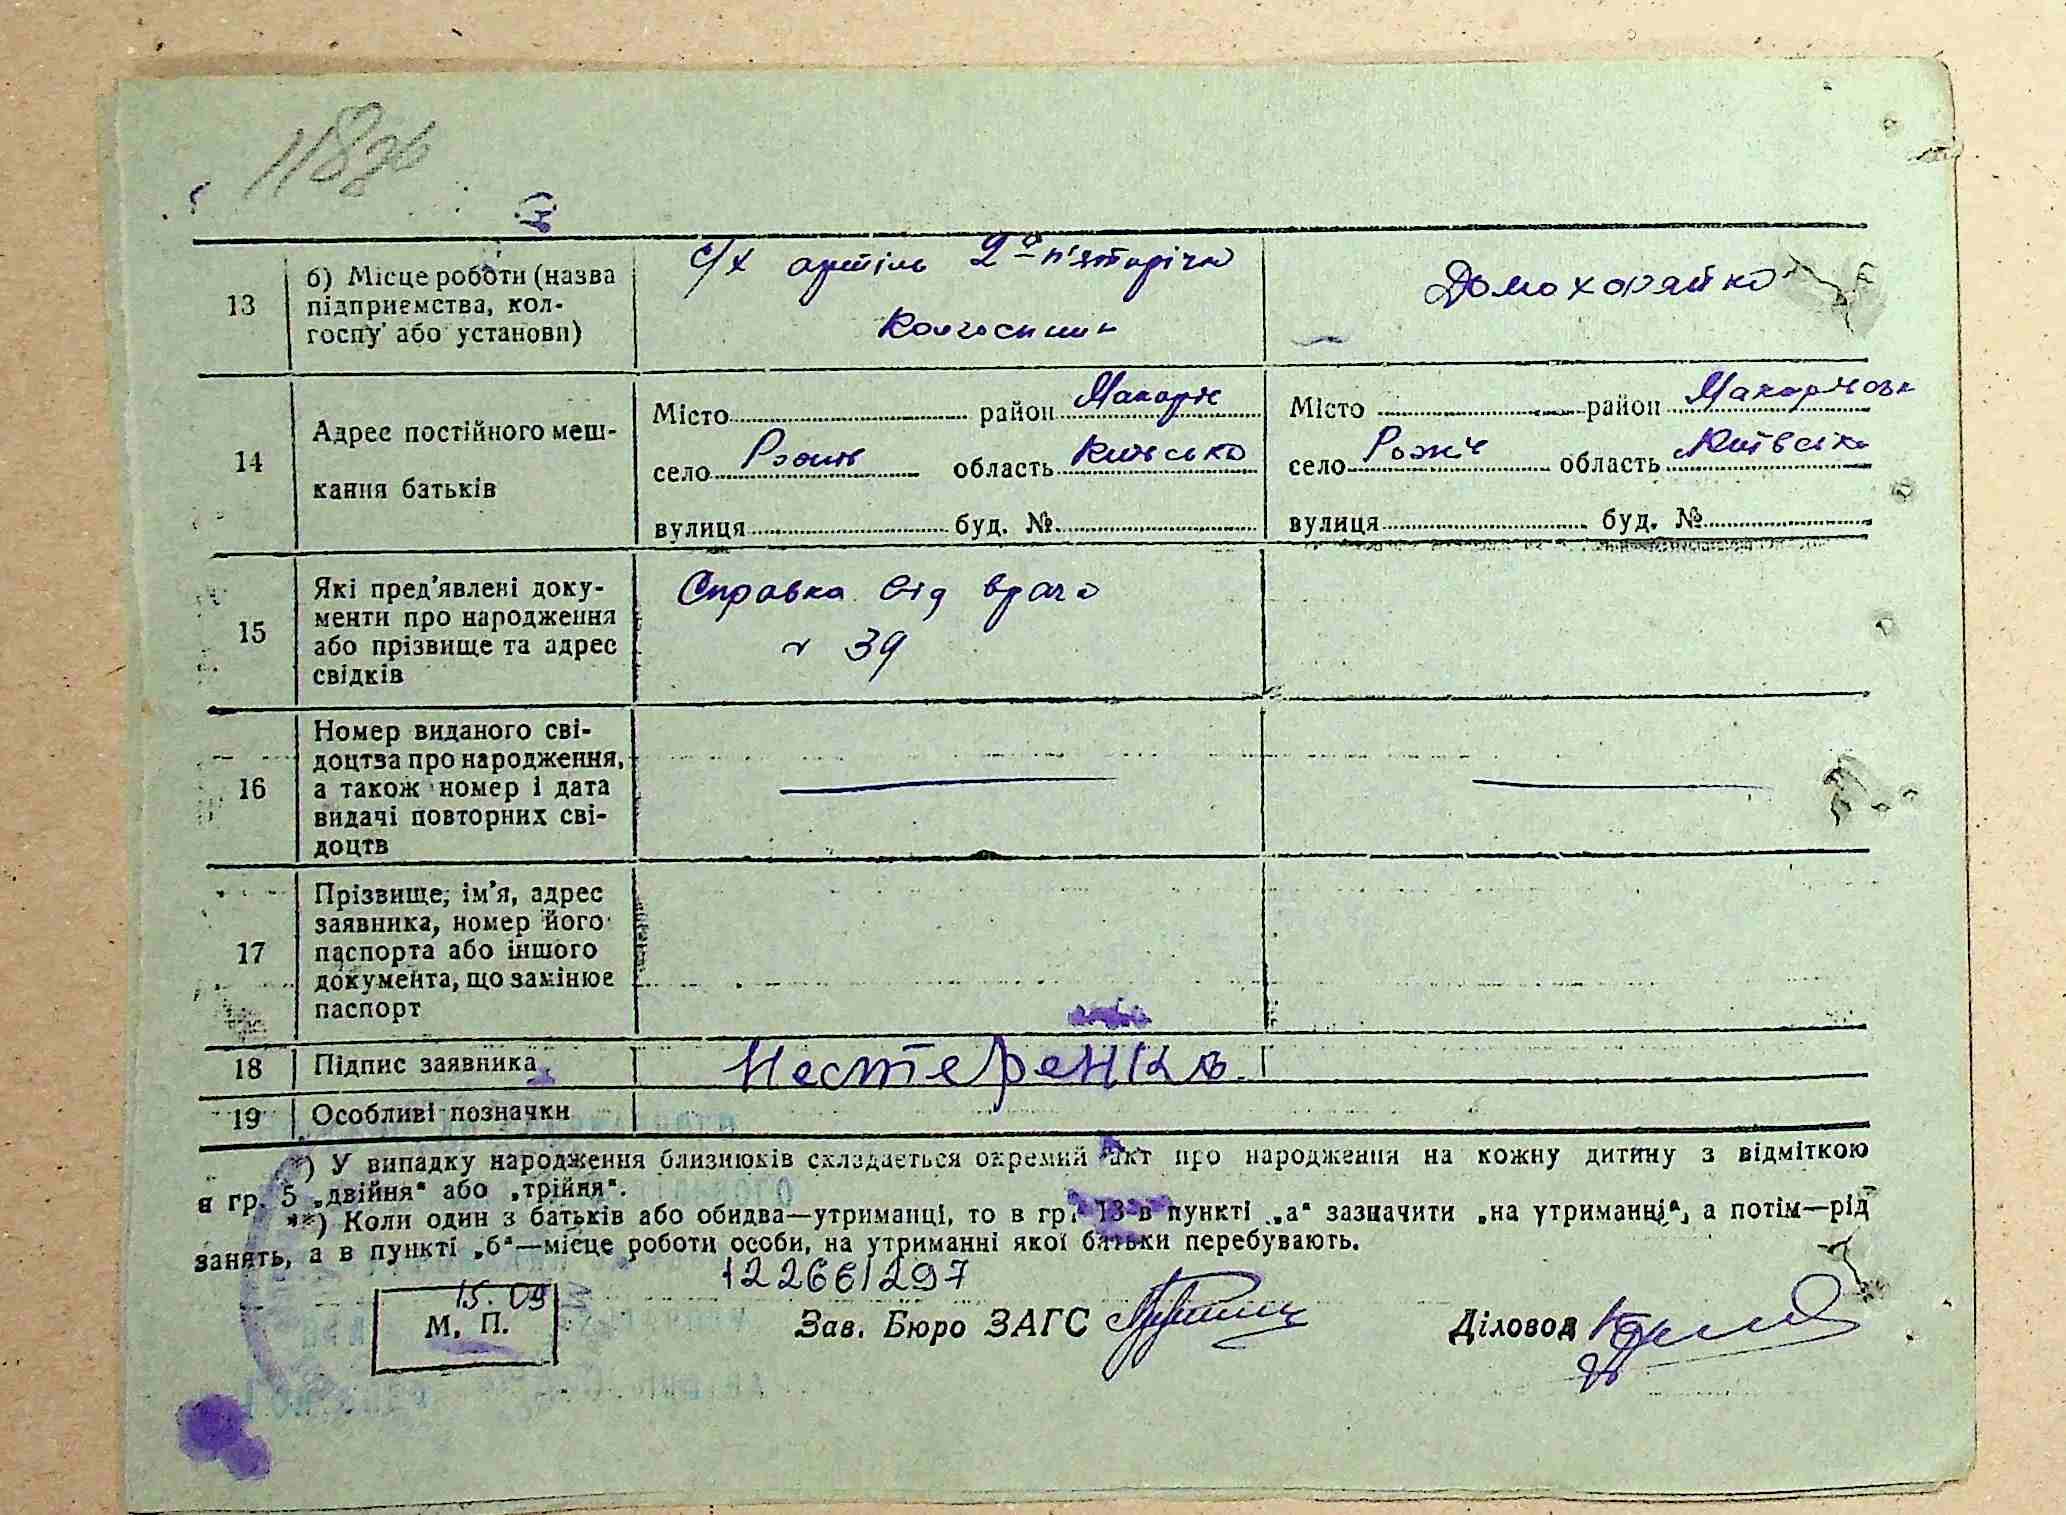 13
б) Місце роботи (назва
підприємства, кол-
госпу або установи)
с/х артіль 2а п'ятирічка
Колгоспник
Домохазяйка
14
Адрес постійного меш-
кання батьків
Місто район Макарів
село Рожів область Київська
вулиця буд. №
Місто район Макарівськ
село Рожів область Київська
вулиця буд. №
15
Які пред'явлені доку-
менти про народження
або прізвище та адрес
свідків
Справка від врача
39
16
Номер виданого сві-
доцтва про народження,
а також номер і дата
видачі повторних сві-
доцтв
17
Прізвище, ім'я, адрес
заявника, номер його
паспорта або іншого
документа, що замінює
паспорт
18
Підпис заявника
Нестеренко
19
Особливі позначки
*) У випадку народження близнюків складається окремий акт про народження на кожну дитину з відміткою
в гр. 5 „двійня" або „трійня".
**) Коли один з батьків або обидва—утриманці, то в гр. 13 в пункті „а" зазначити „на утриманці", а потім—рід
занять, а в пункті „б"—місце роботи особи, на утриманні якої батьки перебувають.
12266/297
15.09
М. П.
Зав. Бюро ЗАГС
Діловод